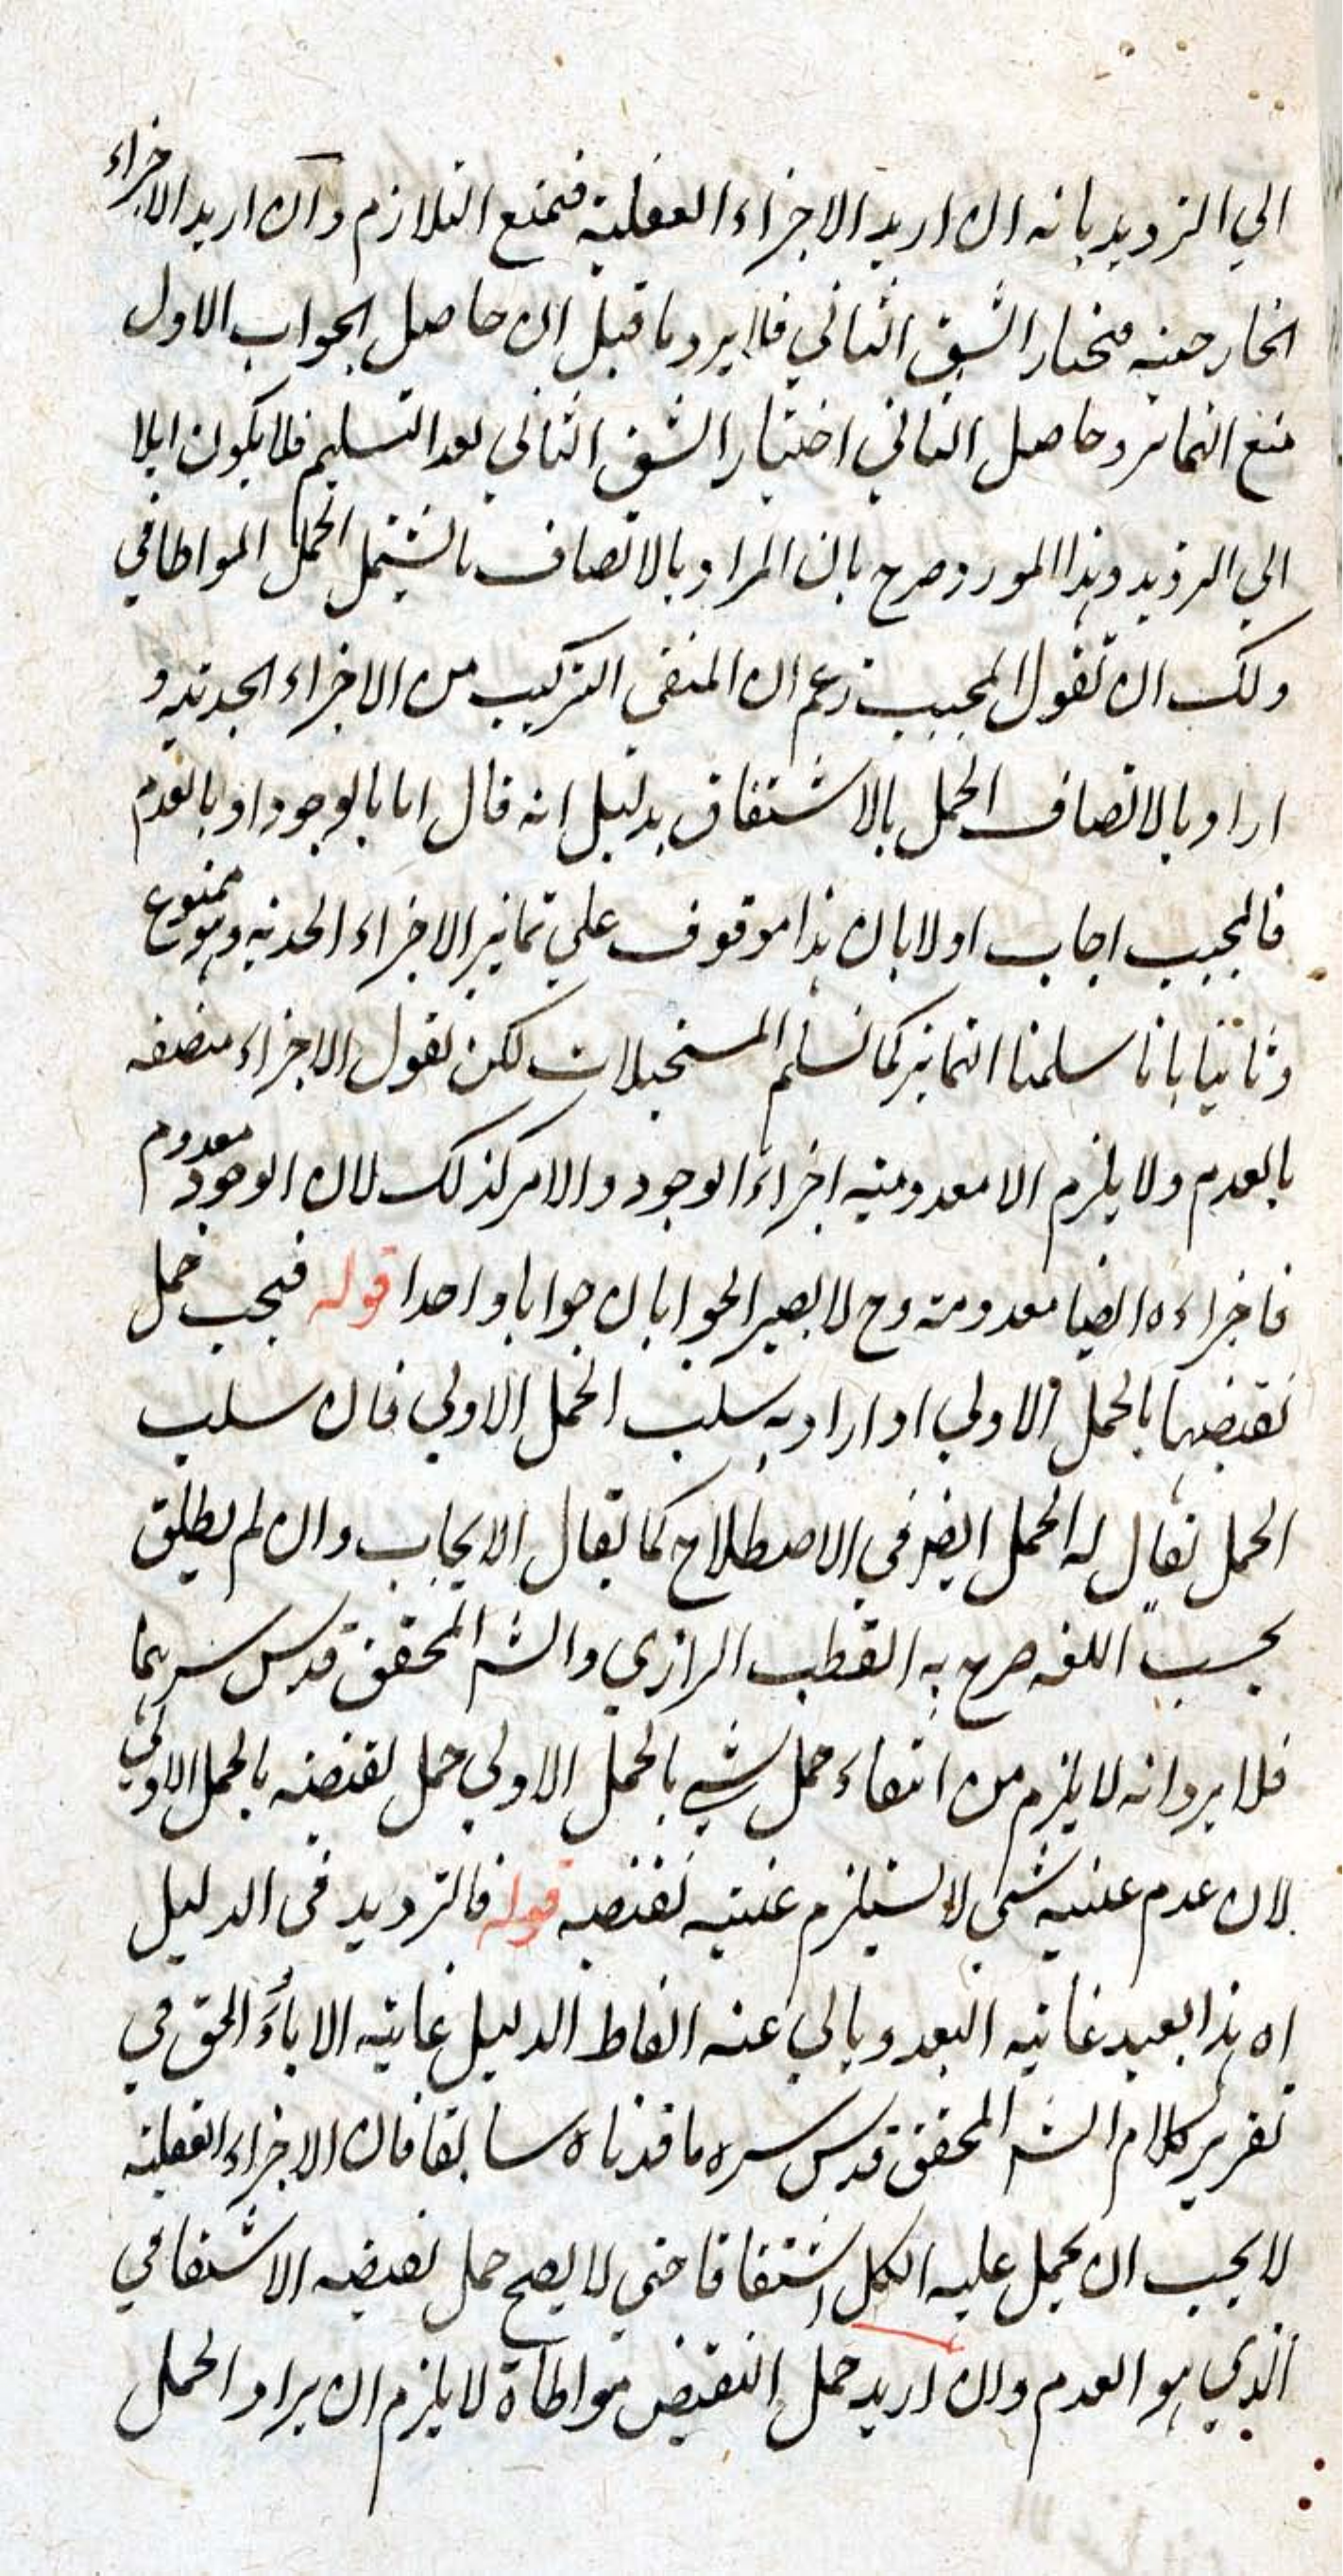 الي الترديد بانه ان اريد الاجزاء العقلية فنمنع التلازم وان اريد الاجزاء
الخارجية فنختار الشق الثاني فلا يرد ما قيل ان حاصل الجواب الاول
منع التمايز وحاصل الثاني اختيار الشق الثاني بعد التسليم فلا يكون ايلا
الي الترديد وهذا المورد صرح بان المراد بالاتصاف ما يشتمل الحمل المواطاتي
ولك ان تقول المجيب زعم ان المنفى التركيب من الاجزاء الحدية و
اراد بالاتصاف الحمل بالاشتقاق بدليل انه قال اما بالوجود او بالعدم
فالمجيب اجاب اولا بان هذا موقوف علي تمايز الاجزاء الحدية وهو ممنوع
وثانيا بانا سلمنا التمايز كما نسلم المستحيلات لكن نقول الاجزاء متصفه
بالعدم ولا يلزم الا معدومية اجزاء الوجود والامر كذلك لان الوجود معدوم
فاجزاءه ايضا معدومة وح لا يصير الجوابان جوابا واحدا قوله فيجب حمل
نقيضها بالحمل الاولي او اراد به سلب الحمل الاولي فان سلب
الحمل يقال له الحمل ايضا في الاصطلاح كما يقال الايجاب وان لم يطلق
بحسب اللغه صرح به القطب الرازي والشه المحقق قدس سرهما
فلا يرد انه لا يلزم من انتفاء حمل شي بالحمل الاولي حمل نقيضه بالحمل الاولي
لان عدم عينية شي لا يستلزم عينية نقيضه قوله فالترديد فى الدليل
اه هذا بعيد غاية البعد ويابي عنه الفاظ الدليل غاية الاباء الحق في
تقرير كلام الشه المحقق قدس سره ما قدمناه سابقا فان الاجزاء العقلية
لا يجب ان يحمل عليه الكل اشتقاقا حتي لا يصح حمل نقيضه الاشتقاقي
الذي هو العدم وان اريد حمل النقيض مواطاة لا يلزم ان يراد الحمل